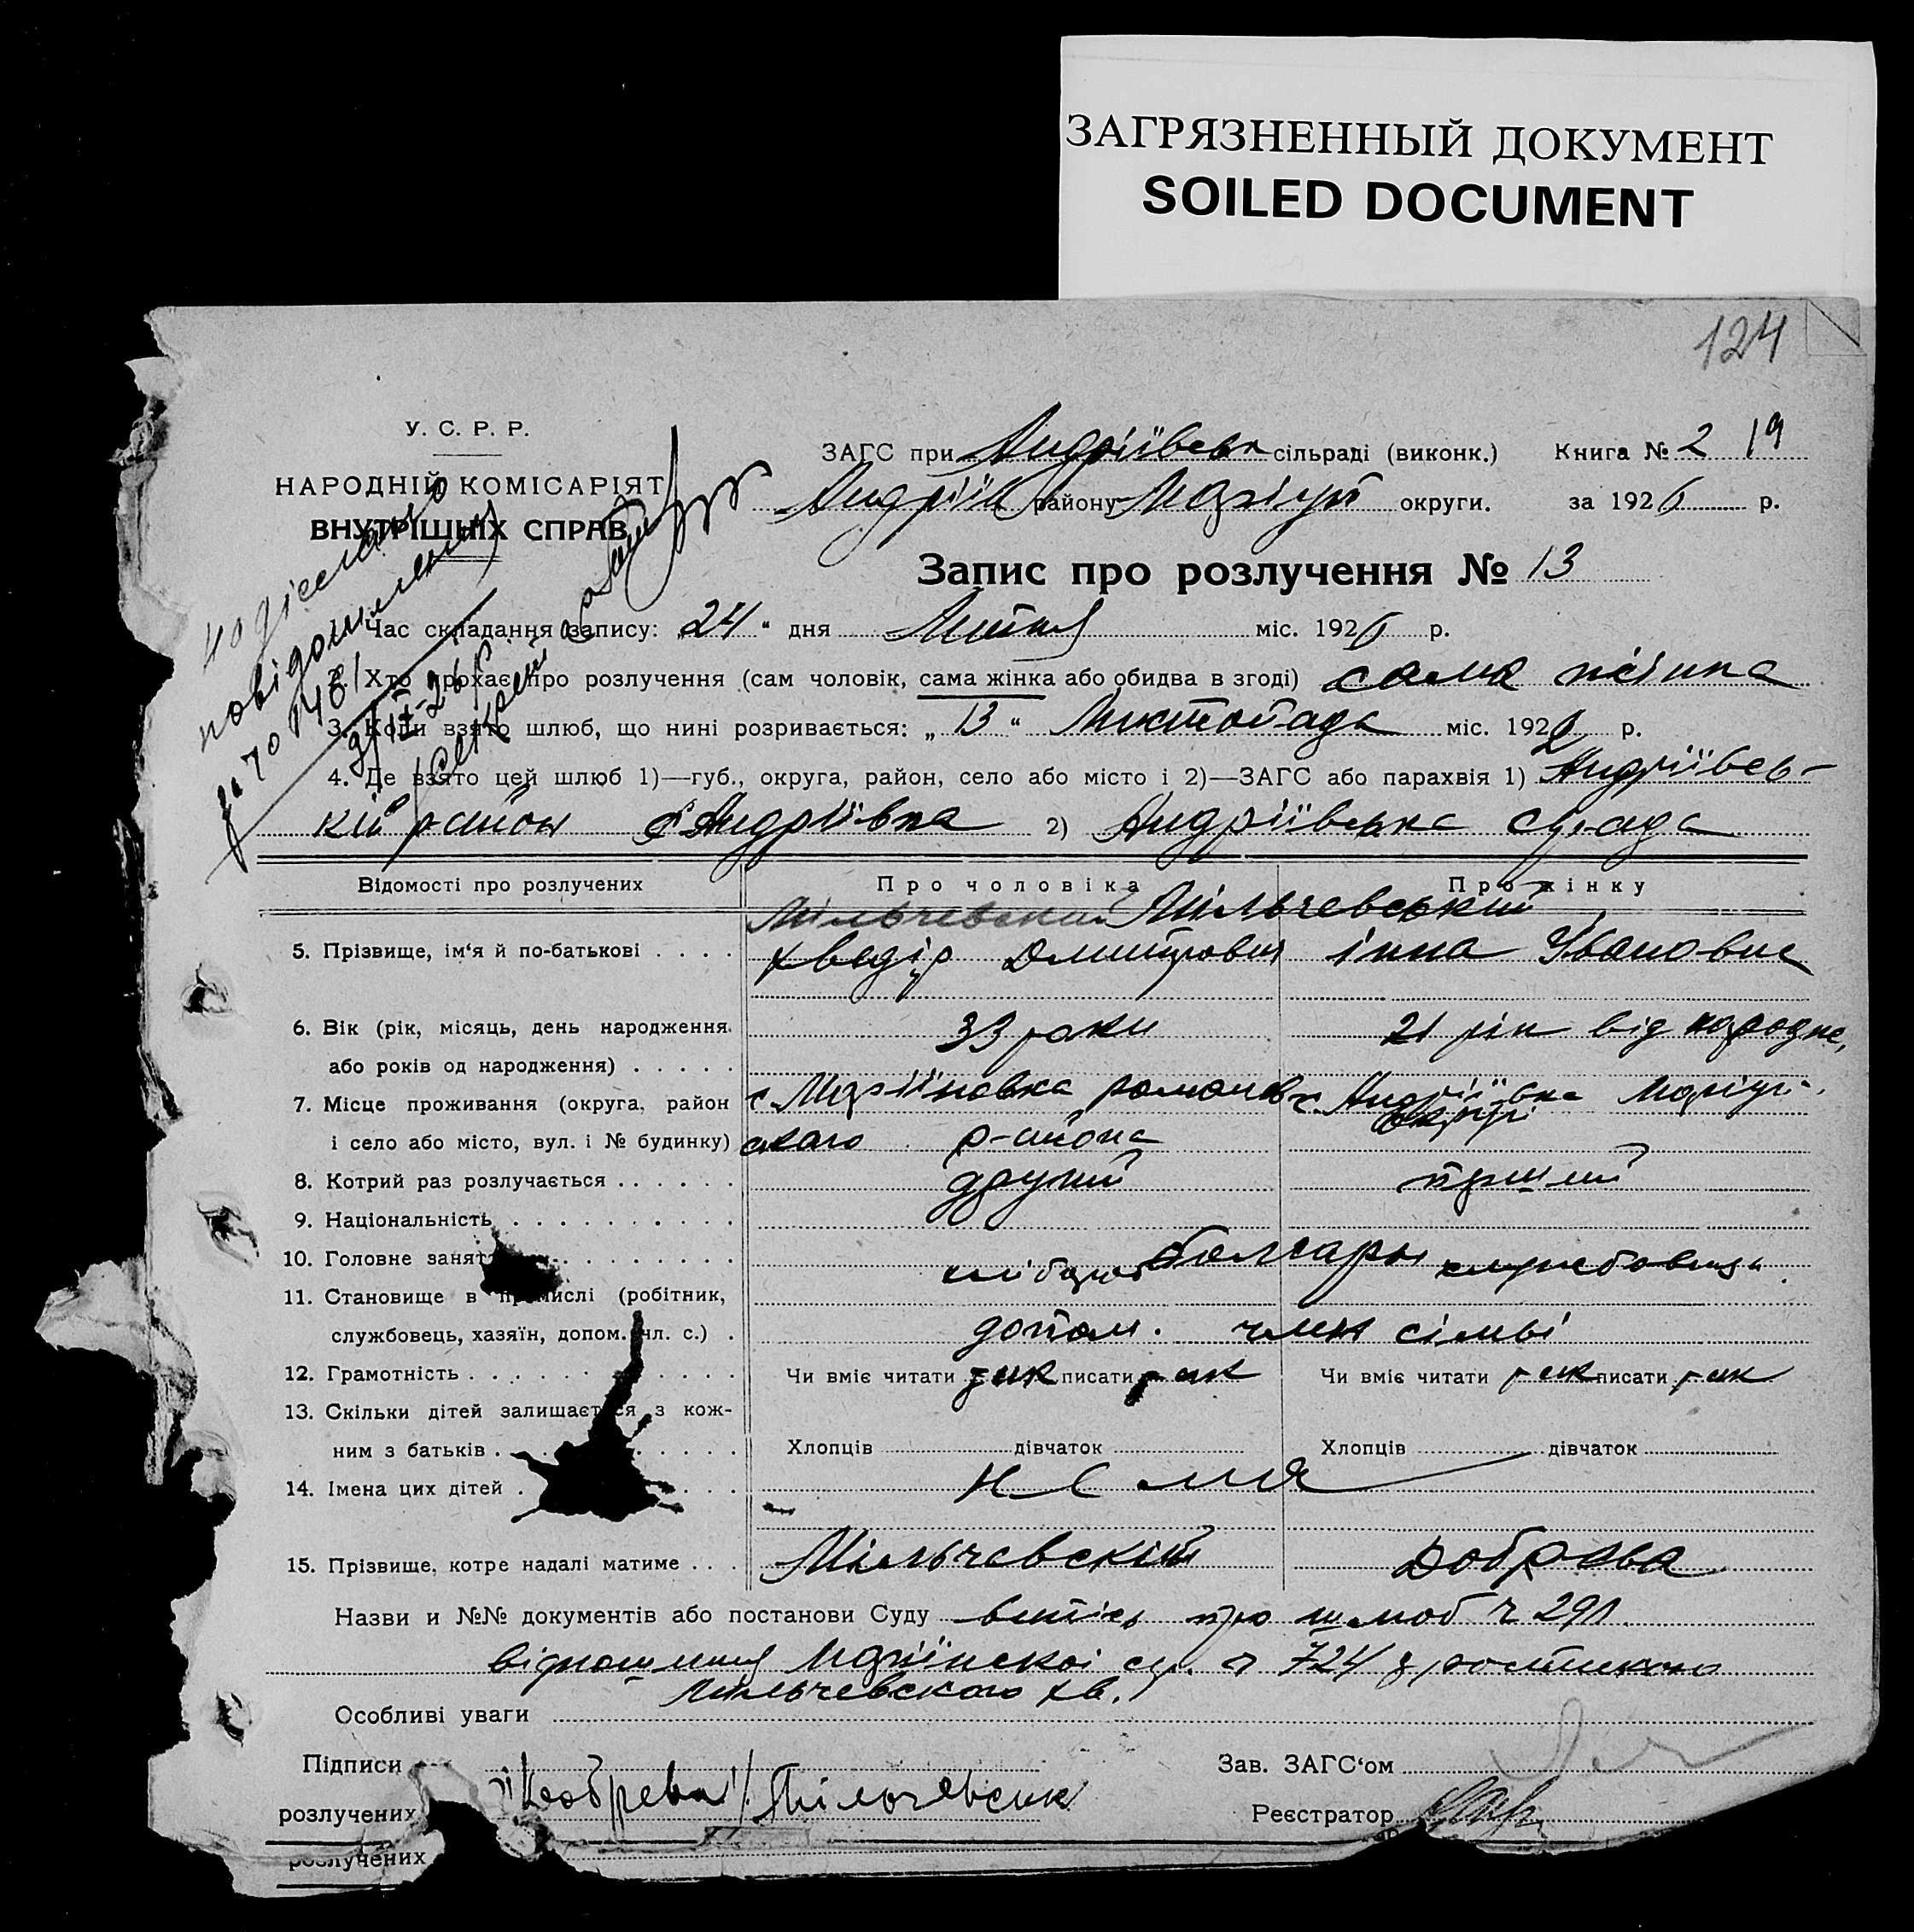 ЗАГРЯЗНЕННЫЙ ДОКУМЕНТ
SOILED DOCUMENT
124
У. С. Р. Р.
НАРОДНІЙ КОМІСАРІЯТ
ВНУТРІШНІХ СПРАВ
ЗАГС при Андріївськ сільраді (виконк.) Книга № 2 19
Андріїв району Маріуп округи. за 1926 р.
Запис про розлучення № 13
Час складання запису: „24“ дня Липня міс. 1926 р.
2. Хто прохає про розлучення (сам чоловік, сама жінка або обидва в згоді) сама жінка
3. Коли взято шлюб, що нині розривається: „13“ Листопада міс. 192 р.
4. Де взято цей шлюб 1)—губ., округа, район, село або місто і 2)—ЗАГС або парахвія 1) Андріївсь-
кій район с Андріївка 2) Андріївська с/рада
Відомості про розлучених Про чоловіка Про жінку
Мільчевский Мільчевський
5. Прізвище, ім‘я й по-батькові . . . . Хведір Дмитрович інна Івановна
6. Вік (рік, місяць, день народження 33 роки 21 рік від народже,
або років од народження) . . . . .
7. Місце проживання (округа, район с. Маріїновка романов с. Андріївка Маріуп.
округі
і село або місто, вул. і № будинку) ского района
8. Котрий раз розлучається . . . . . . другий перший
9. Національність . . . . . . . . . .
болгары
10. Головне занят . . . . . . . . хлібороб службовиця
11. Становище в промислі (робітник,
службовець, хазяїн, допом. чл. с.) . допом. член сімьі
12. Грамотність . . . . . . . . . . . . . Чи вміє читати так писати так Чи вміє читати так писати так
13. Скільки дітей залишається з кож-
ним з батьків . . . . . . . . Хлопців дівчаток Хлопців дівчаток
14. Імена цих дітей . . . . нема
15. Прізвище, котре надалі матиме . . . Мільчевскій Добрева
Назви и №№ документів або постанови Суду витісь про шлюб ч 291
відношення Маріїнскоі с/р. ч 724 з роспискою
Мільчевского хв.
Особливі уваги
Підписи Зав. ЗАГС‘ом
Добрева / Мільчевски
розлучених Реєстратор
розлучених